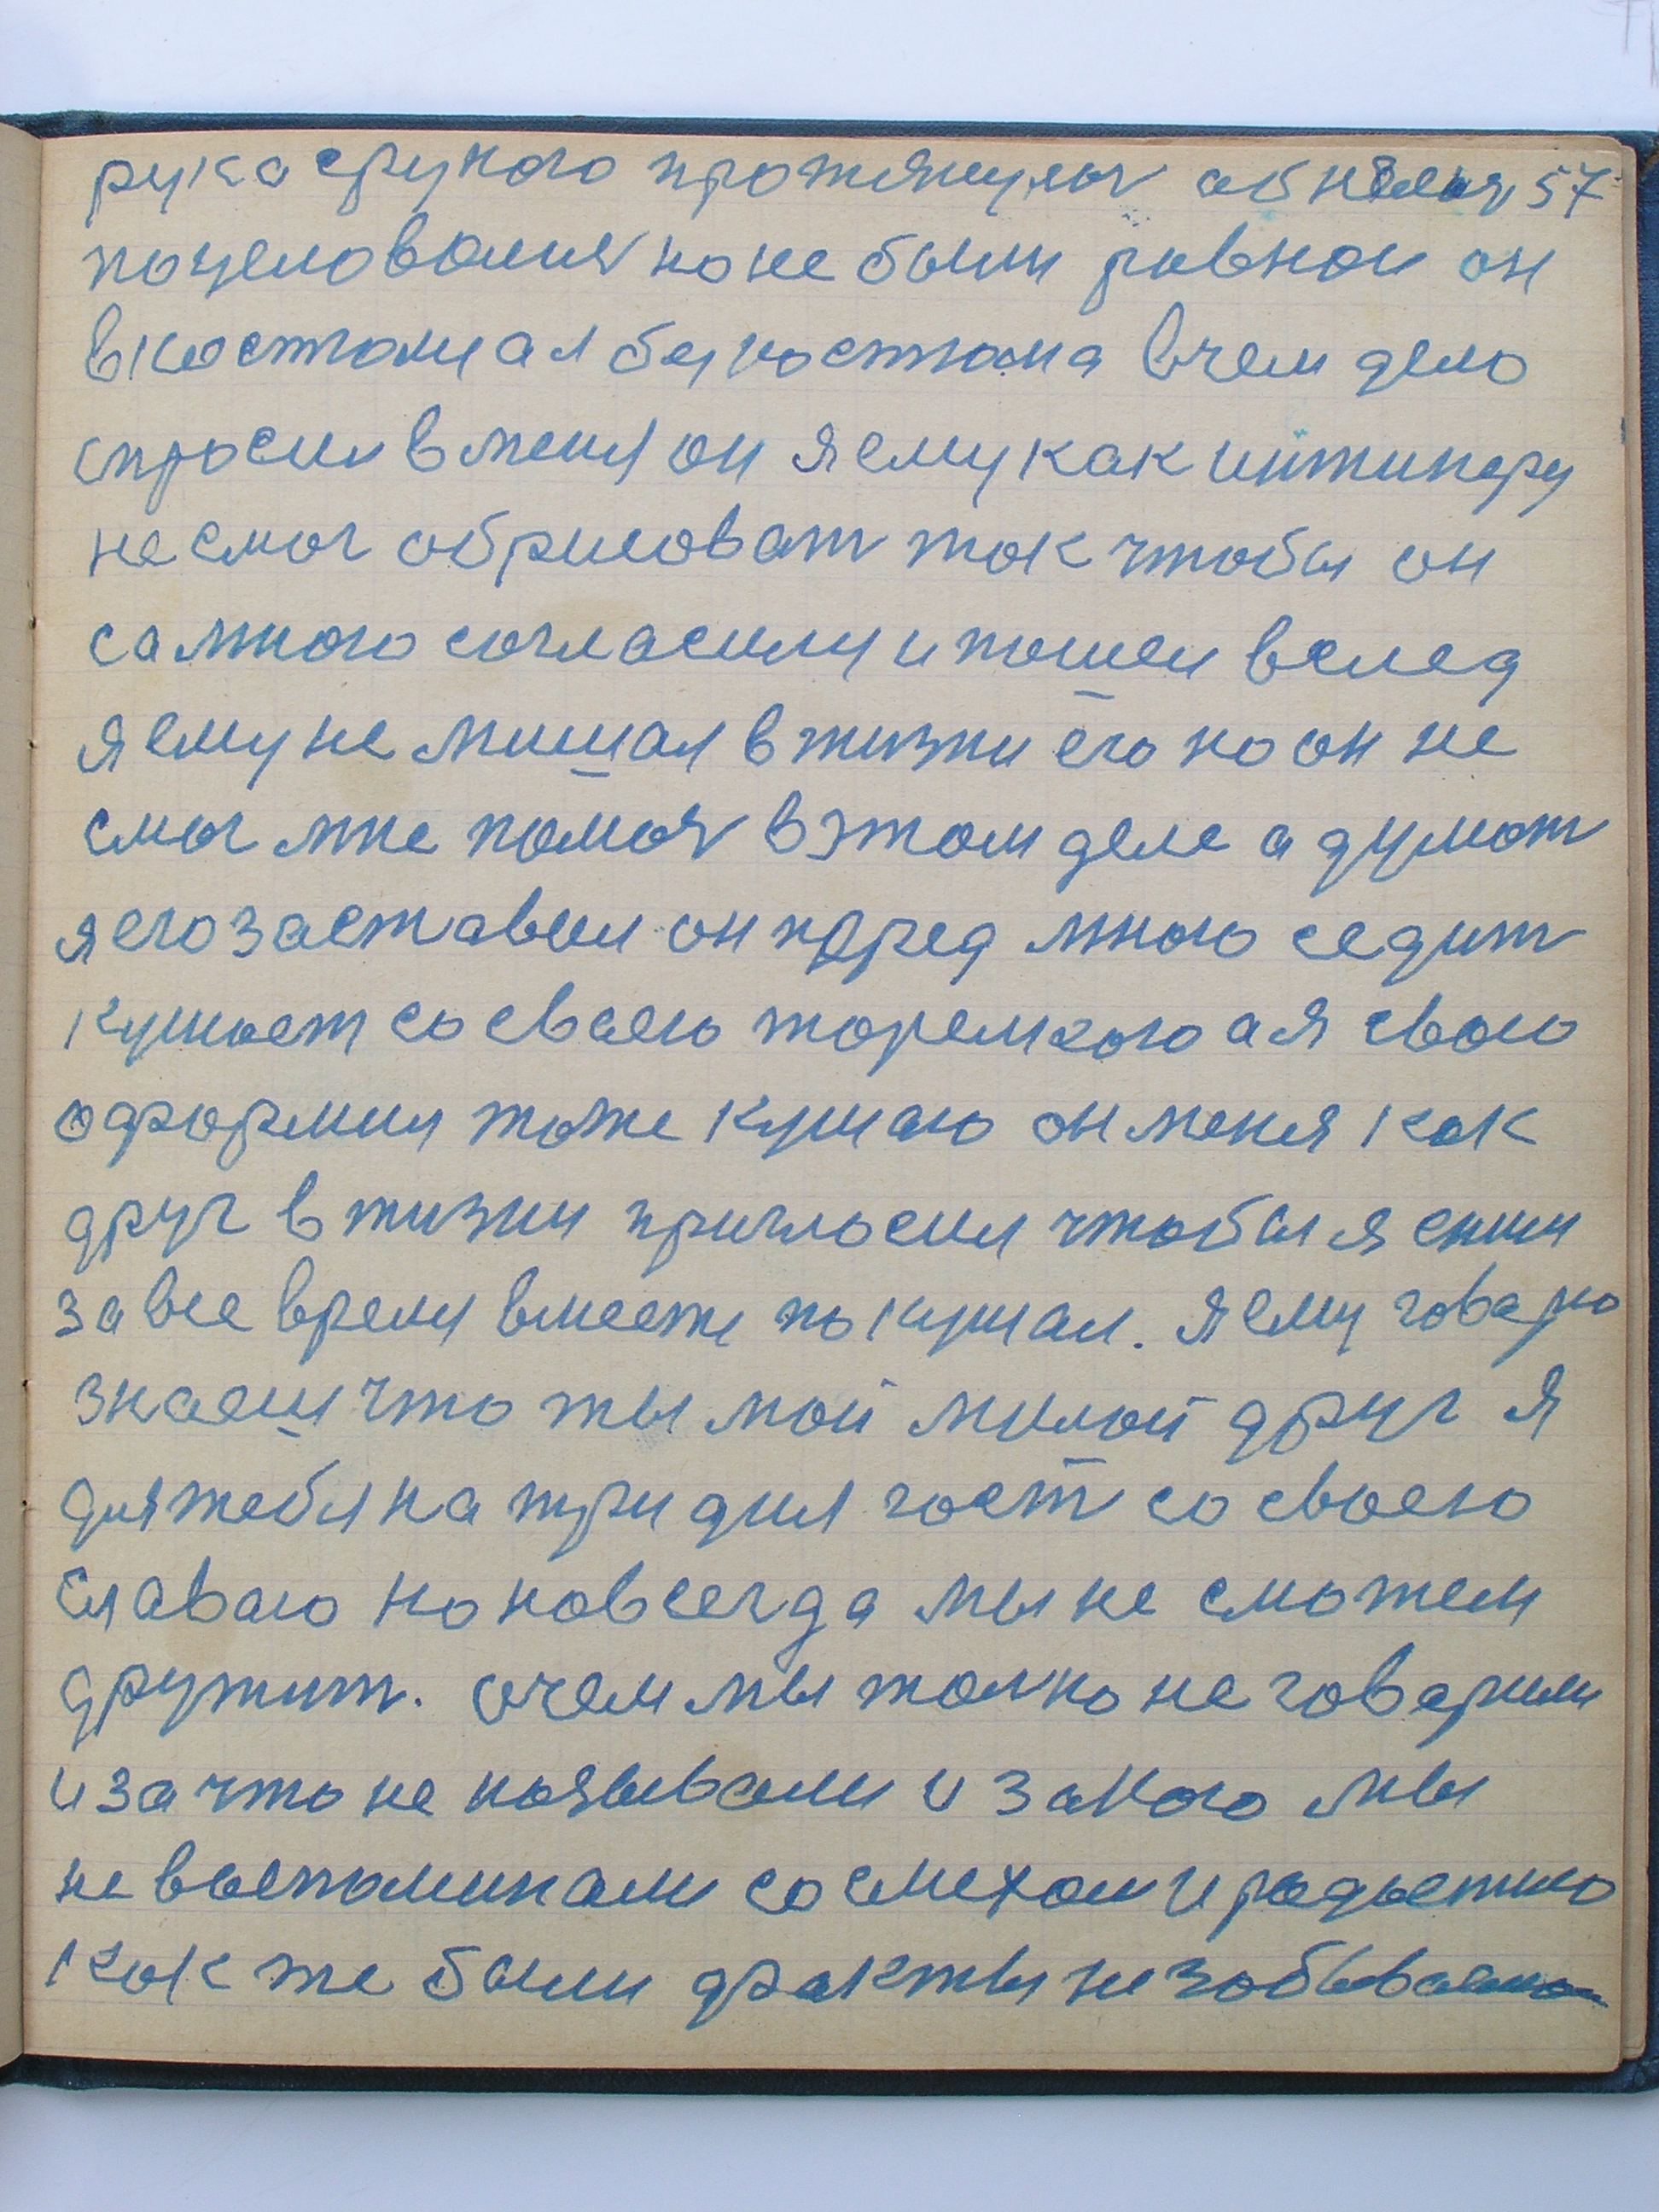 рука с рукою протянулы обнялис 57
поцеловалис но не были ровной он
в костюми а я без костюма в чем дело
спросил в меня он я ему как интинеру
не смог обрисоват так чтобы он
са мною согласилса и пошел вслед
я ему не мишал в жизни его но он не
смог мне помоч в этом деле а думат
я его заставил он перед мною седит
кушает со своею торелкою а я свою
оформил тоже кушаю он меня как
друг в жизни пригласил чтобы я сним
за все время вместе покушал. Я ему говарю
знаеш что ты мой милой друг я
для тебя на три дня гост со своею
славаю но навсегда мы не сможем
дружит. очем мы толко не говарили
и за что не называли и за кого мы
не воспоминали со смехом и радостию
как же были факты не забываемо